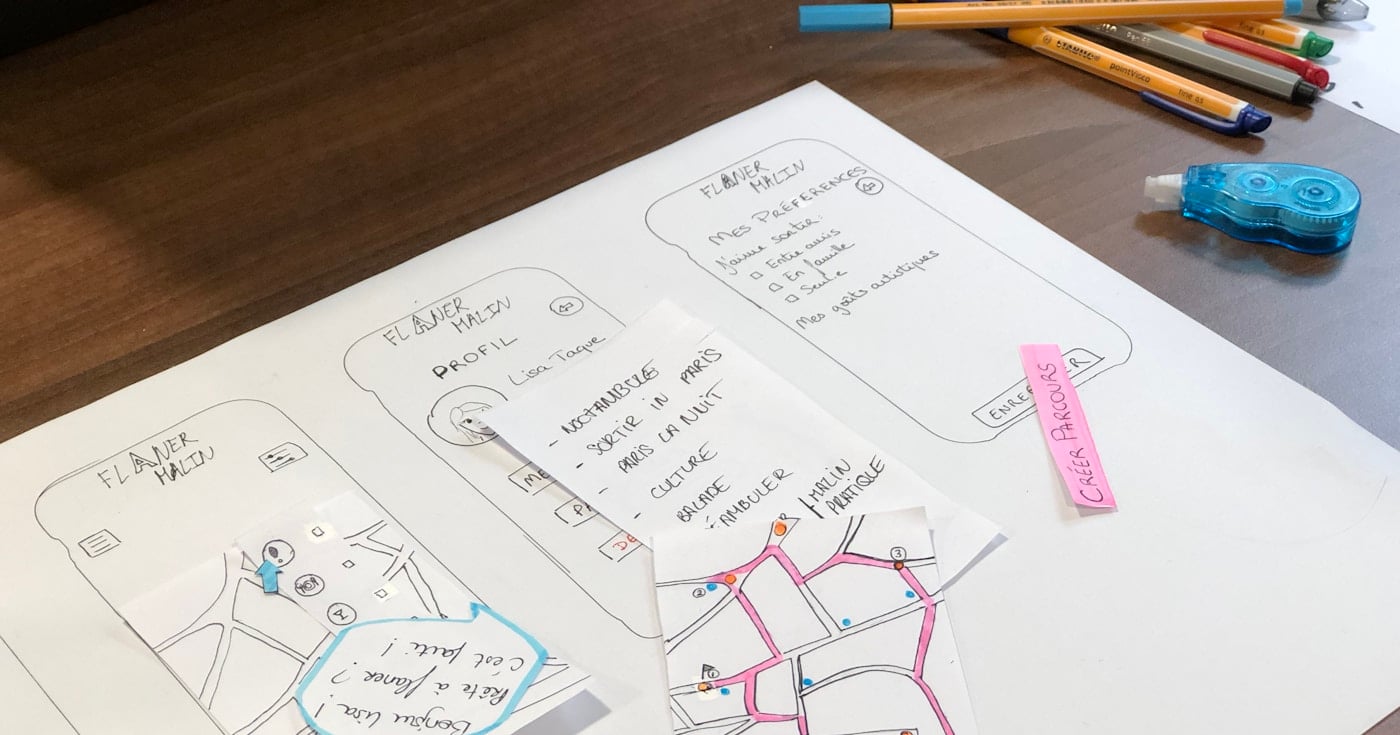 FLANER
MALIN
FLANER
MALIN
PROFIL
Lisa Taque
ME
PA
DÉ
- NOCTAMBULE
- SORTIR IN PARIS
- PARIS LA NUIT
CULTURE
- BALADE
AMBULER
MALIN
PRATIQUE
FLANER
MALIN
MES PRÉFÉRENCES
J'aime sortir :
Entre amis
En famille
Seule
Mes goûts artistiques
ENRE
ER
CRÉER PARCOURS
Bonjour Lisa !
Prête à flaner ?
C'est parti !
2
3
STABILO
pointVisco
fine 0.5